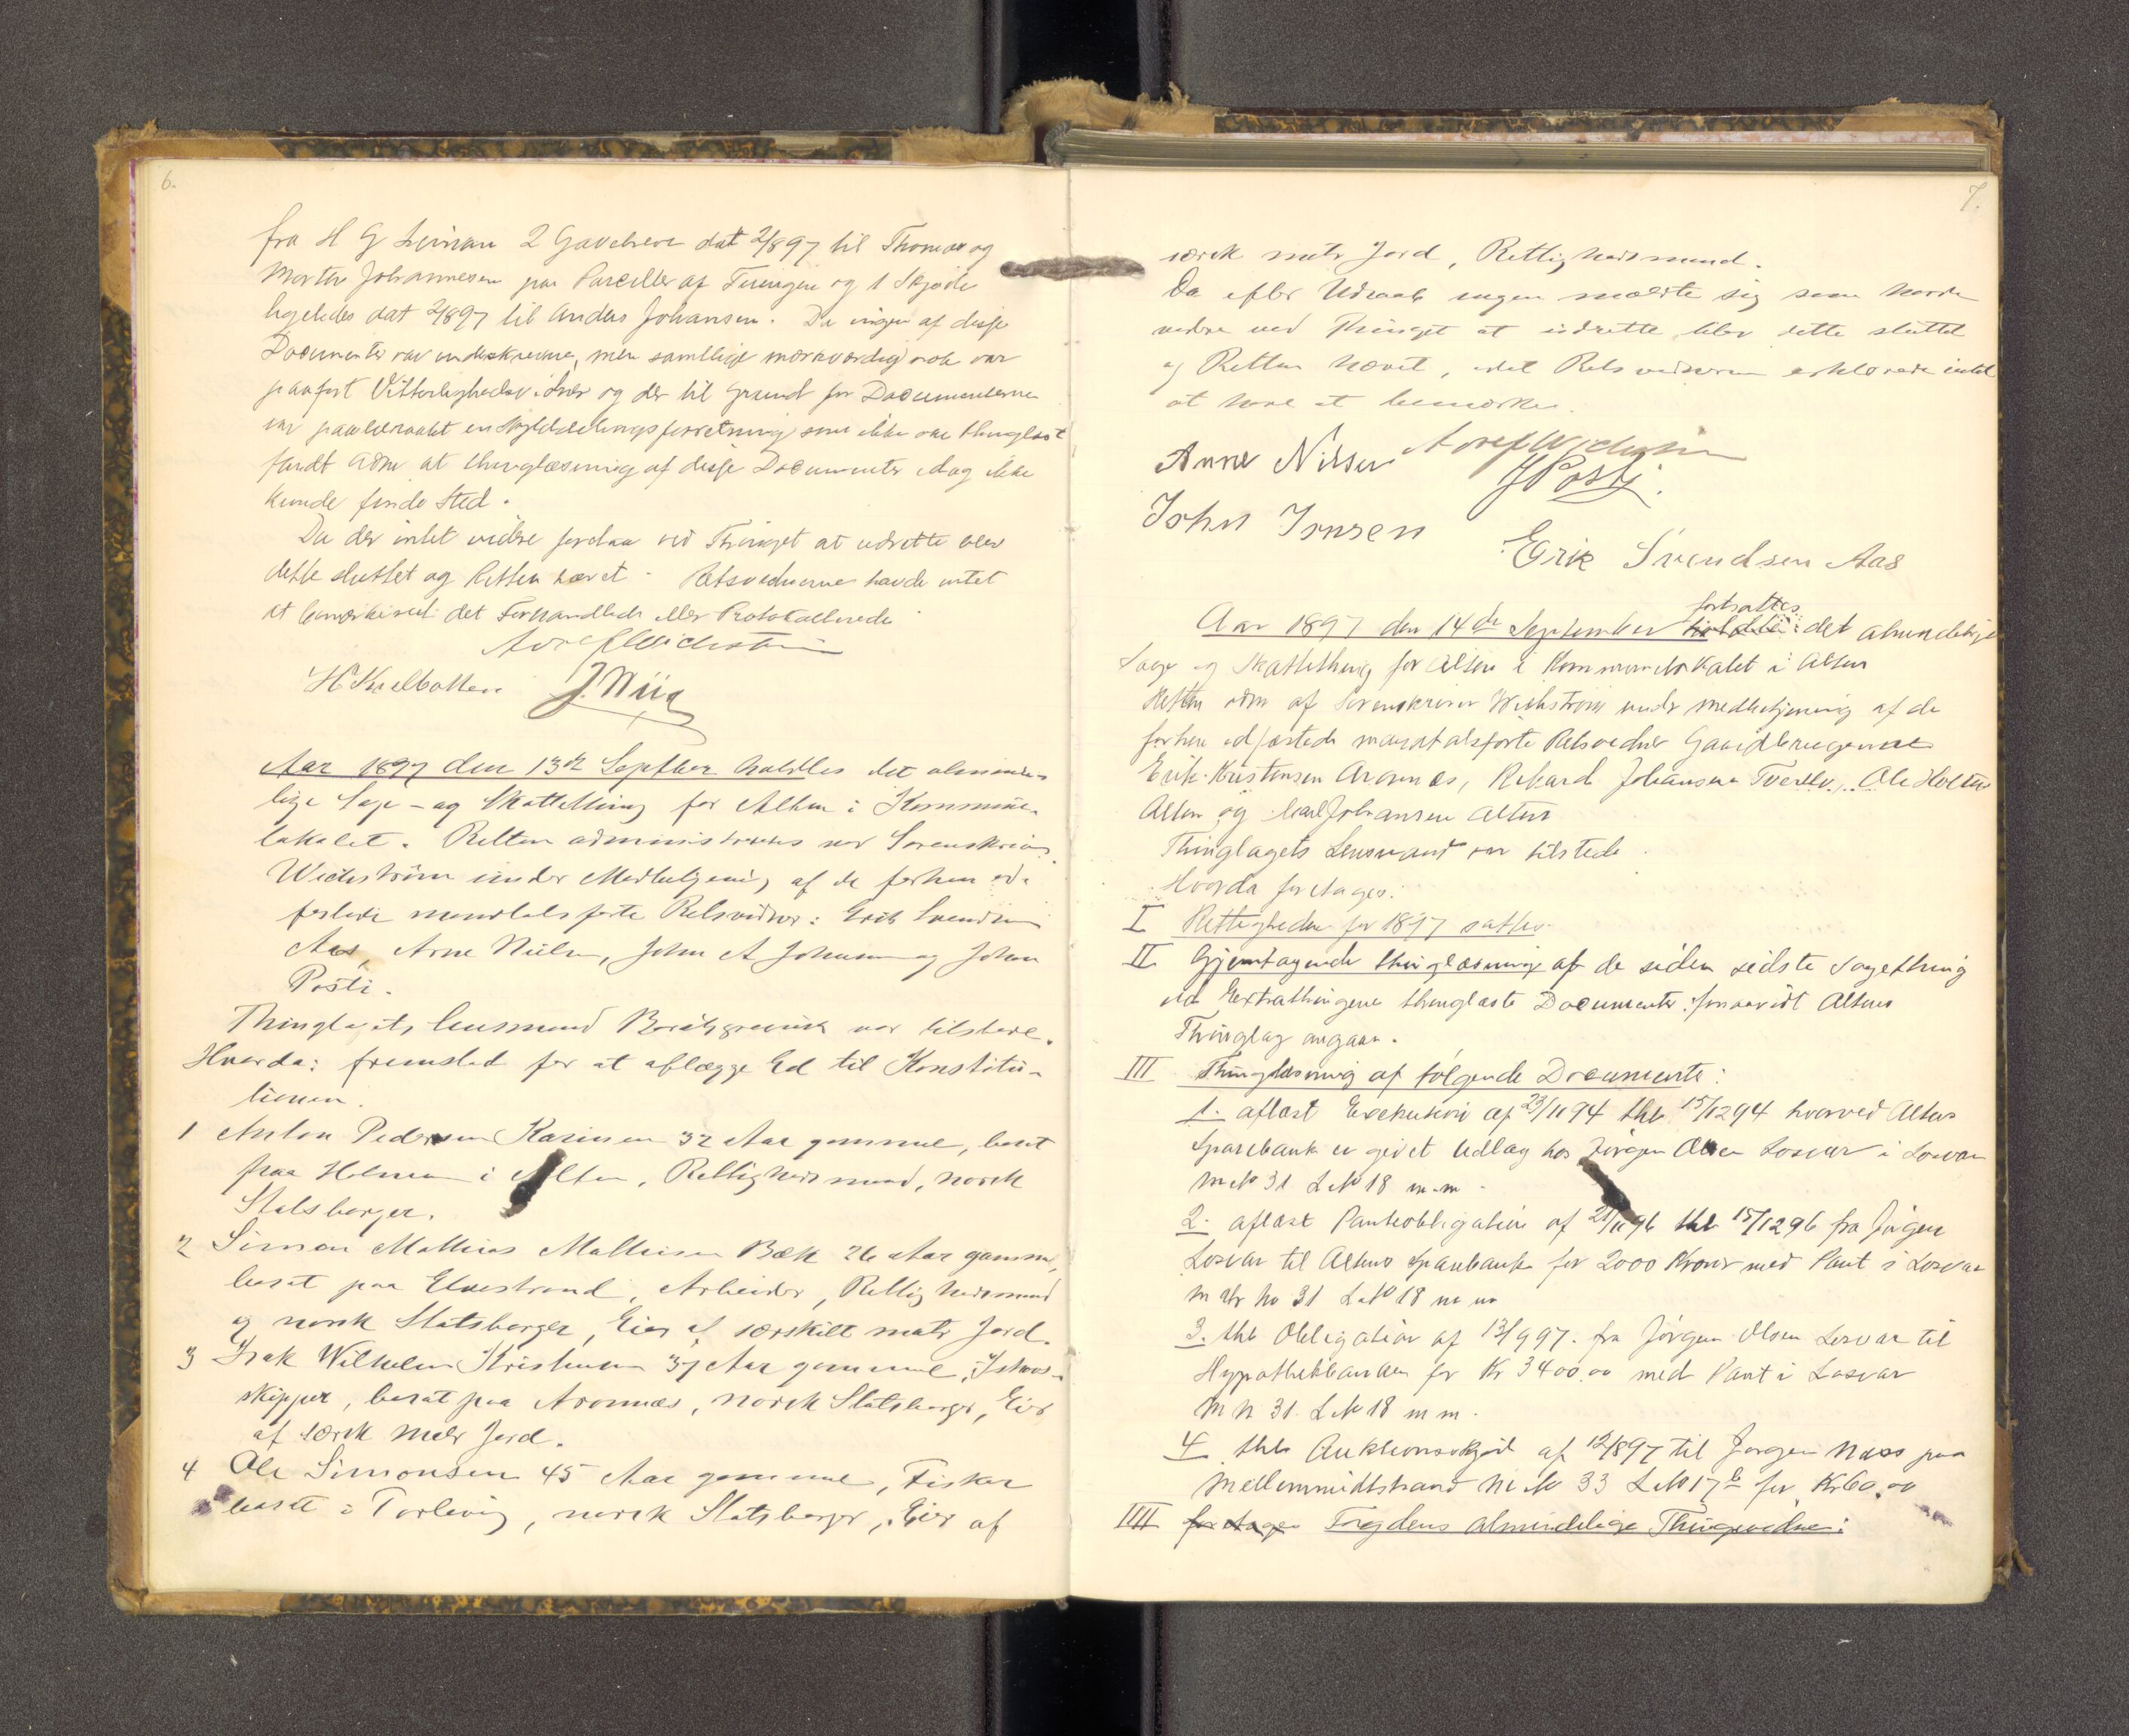 6.
fra H G 2 Gavebreve dat 2/897 til Thomas og
Morten Johannesen paa Parceller af og 1 Skjøde
ligeledes dat 2/897 til Anders Johansen. Da ingen af disse
Documenter var underskrevne, men samtlige mærkværdig nok var
paaført Vitterlighedsvidner og der til Grund for Documenterne
var paaberaabt en Skylddelingsforretning som ikke var thinglæst
fandt Adm at thinglæsning af disse Documenter idag ikke
kunde finde Sted.
Da der intet videre forelaa ved Thinget at udrette blev
dette sluttet og Retten hævet. Retsvidnerne havde intet
at bemærke ved det Forhandlede eller Protokollerede
Adolf Wichstrøm
H Kielbotten J. Wiig
Aar 1897 den 13de Septber holdtes det alminde-
lige Sage- og Skattething for Alten i Kommune-
lokalet. Retten administreres ved Sorenskriver
Wichstrøm under Medbetjening af de forhen ed-
festede mandtalsførte Retsvidner: Erik Svendsen
Aas, Arne Nielsen, John A Johnsen og Johan
Posti.
Thinglagets Lensmand var tilstede.
Hvorda: fremstod for at aflægge Ed til Konstitu-
tionen.
1 Anton Pedersen Karinen 32 Aar gammel, bosat
paa Holmen i Alten, Rettighedsmand, norsk
Statsborger.
2 Simon Mathias Mathisen Bæk 26 Aar gammel,
bosat paa Elvestrand, Arbeider, Rettighedsmand
og norsk Statsborger, Eier af særskilt matr Jord.
3 Isak Wilhelm Kristensen 37 Aar gammel, Ishavs-
skipper, bosat paa Aronnæs, norsk Statsborger, Eier
af særsk matr Jord.
4 Ole Simonsen 45 Aar gammel, Fisker
bosat i Torleving, norsk Statsborger, Eier af
7.
særsk matr Jord, Rettighedsmand.
Da efter Udraab ingen meldte sig som havde
videre ved Thinget at udrette blev dette sluttet
og Retten hævet, idet Retsvidnerne erklærede intet
at have at bemærke.
Adolf Wichstrøm
Arne Nilsen J Posti.
John Jonsen
Erik Svendsen Aas
fortsattes
Aar 1897 den 14de September holdtes det almindelige
Sage og Skattething for Alten i Kommunelokalet i Alten
Retten adm af Sorenskriver Wichstrøm under Medbetjening af de
forhen edfæstede mandtalsførte Retsvidner Gaardbrugerne
Erik Kristensen Aronnæs, Rikard Johansen Tverelv, Ole Holten
Alten og Carl Johansen Alten
Thinglagets Lensmand var tilstede.
Hvorda foretages:
I Rettigheden for 1897 sattes.
II Gjentagende thinglæsning af de siden sidste Sagething
ved Extrathingene thinglæste Documenter forsaavidt Altens
Thinglag angaar.
III Thinglæsning af følgende Documenter:
1. aflæst Exekution af 23/1194 thl 15/1294 hvorved Altens
Sparebank er givet Udlag hos Jørgen Olsen Losvar i Losvar
M No 31 L No 18 m.m.
2. aflæst Panteobligation af 21/1196 thl 15/1296 fra Jørgen
Losvar til Altens Sparebank for 2000 Kroner med Pant i Losvar
M Nr No 31 L No 18 m m
3. thl Obligation af 13/997. fra Jørgen Olsen Losvar til
Hypothekbanken for Kr 3400.00 med Pant i Losvar
M N 31. L No 18 m m.
4 thl Auktionsskjøde af 12/897 til Jørgen Næss paa
Mellemmidtstrand M No 33 L No 17b for Kr 60.00
IIII foretages Fogdens almindelige Thingsvidne: